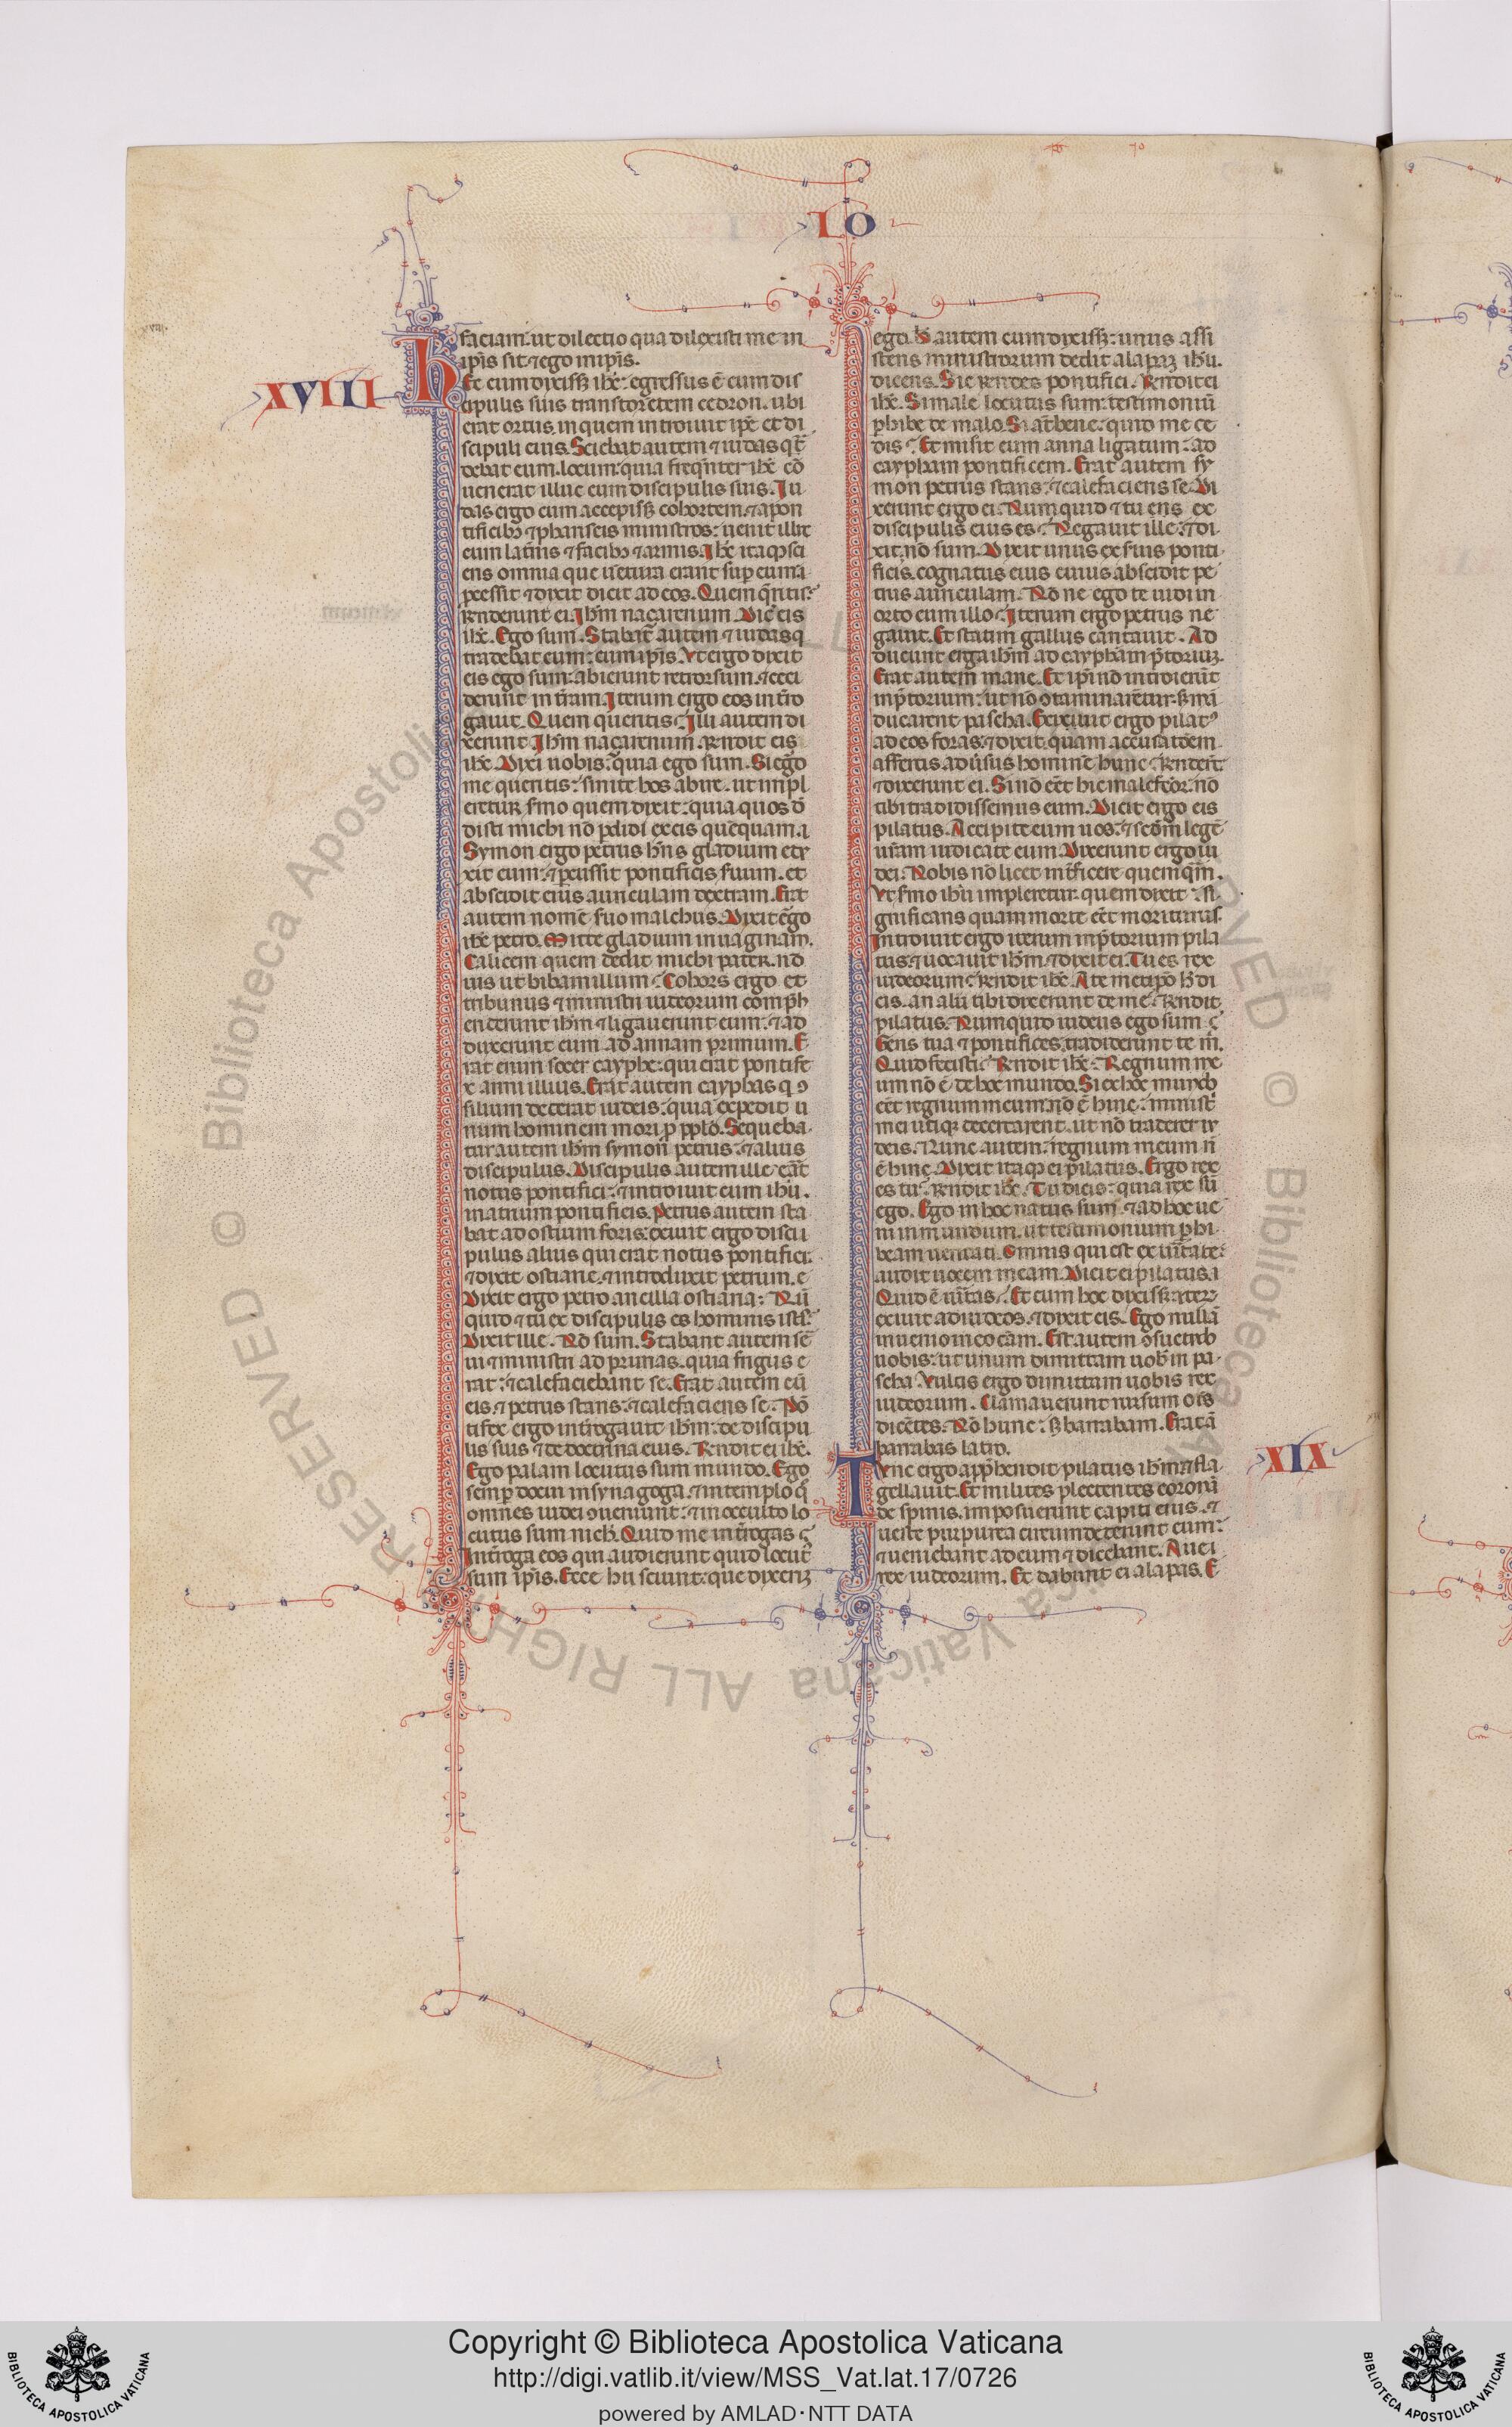 LO
XVIII
faciam. ut dilectio qua dilexisti me in
ip̄is sit. ⁊ ego in ip̄is.
Hec cum dixissꝫ ihc̄. egressus ē cum dis
cipulis suis trans torētem cedron. ubi
erat ortus. in quem introiuit ip̄e et di
scipuli eius. Sciebat autem ⁊ iudas q̄ t̄
debat eum. locum. quia freq̄nter ihc̄ cō
uenerat illuc cum discipulis suis. Iu
das ergo cum accepissꝫ cohortem. ⁊ a pon
tificibꝫ ⁊ phariseis ministros. uenit illuc
cum lat̄nis ⁊ facibꝫ ⁊ armis. Ihc̄ itaqꝫ sci
ens omnia que uētura erant sup eum.
p̄cessit ⁊ dixit dicit ad eos. Quem q̄ritis.
Rnderunt ei. Ihm̄ naçarenum. Dic̄ eis
ihc̄. Ego sum. Stabat autem ⁊ iudas q
tradebat eum. cum ip̄is. Vt ergo dixit
eis ego sum. abierunt retrorsum. ⁊ ceci
derunt in t̄ram. Iterum ergo eos int̄ro
gauit. Quem queritis. Illi autem di
xerunt. Ihm̄ naçarenum. Rndit eis
ihc̄. Dixi uobis. quia ego sum. Si ergo
me queritis. sinite hos abire. ut impl
eretur sermo quem dixit. quia quos d̄
disti michi nō pdidi ex eis quēquam.
Symon ergo petrus hn̄s gladium edu
xit eum. ⁊ pcussit pontificis suum. et
abscidit eius auriculam dextram. Erat
autem nomē suo malchus. Dixit ergo
ihc̄ petro. Mitte gladium in uaginam.
Calicem quem dedit michi pater. nō
uis ut bibam illum. Cohors ergo et
tribunus ⁊ ministri iudeorum comph̄
enderunt ihm̄ ⁊ ligauerunt eum. ⁊ ad
duxerunt eum ad annam primum. E
rat enim socer cayphe. qui erat pontife
x anni illius. Erat autem cayphas q ꝯ
silium dederat iudeis. quia expedit u
num hominem mori p pplo. Sequeba
tur autem ihm̄ symon petrus. ⁊ alius
discipulus. Discipulus autem ille erat
notus pontifici. ⁊ introiuit cum ihū.
in atrium pontificis. Petrus autem sta
bat ad ostium foris. exiuit ergo disci
pulus alius qui erat notus pontifici.
⁊ dixit ostiarie. ⁊ introduxit petrum.
Dixit ergo petro ancilla ostiaria. Nū
quid ⁊ tu ex discipulis es hominis istiꝰ.
Dixit ille. Nō sum. Stabant autem se
ui ⁊ ministri ad prunas. quia frigus e
rat. ⁊ calefaciebant se. Erat autem cū
eis ⁊ petrus stans. ⁊ calefaciens se. Pō
tifex ergo int̄rogauit ihm̄. de discipu
lis suis ⁊ de doctrina eius. Rendit ei ihc̄.
Ego palam locutus sum mundo. Ego
semp docui in synagoga. ⁊ in templo q̄
omnes iudei ꝯueniunt. ⁊ in occulto lo
cutus sum nich. Quid me int̄rogas
Int̄roga eos qui audierunt quid locut
sum ip̄is. Ecce hii sciunt. que dixerī
ego. H̄ autem cum dixissꝫ. unus assi
stens ministrorum dedit alapaꝫ ihū.
dicens. Sic rndes pontifici. Rndit ei
ihc̄. Si male locutus sum. testimoniū
phibe de malo. Si aūt bene. quid me ce
dis. Et misit eum anna ligatum. ad
caypham pontificem. Erat autem sy
mon petrus stans. ⁊ calefaciens se. Di
xerunt ergo ei. Numquid ⁊ tu eris ex
discipulis eius es. Negauit ille. ⁊ di
xit. nō sum. Dixit unus ex suis ponti
ficis. cognatus eius cuius abscidit pe
trus auriculam. Nō ne ego te uidi in
orto cum illo. Iterum ergo petrus ne
gauit. Et statim gallus cantauit. Ad
ducunt erga ihm̄ ad caypham p̄toriuꝫ.
Erat autem mane. Et ip̄i nō introierūt
in p̄torium. ut nō ꝯtaminarētur. sꝫ mā
ducarent pascha. Exiuit ergo pilatꝰ
ad eos foras. ⁊ dixit. quam accusatōem
affertis aduersus hominē hunc. Rnderūt
⁊ dixerunt ei. Si nō eēt hic malefcōr. nō
tibi tradidissemus eum. Dicit ergo eis
pilatus. Accipite eum uos. ⁊ scdm legē
urām iudicate eum. Dixerunt ergo iu
dei. Nobis nō licet int̄ficere quemq̄m.
Vt sermo ihū impleretur. quem dixit. si
gnificans quam morte eēt moriturus.
Introiuit ergo iterum in p̄torium pila
tus. ⁊ uocauit ihm̄. ⁊ dixit ei. Tu es rex
iudeorum. Rendit ihc̄. A te metipo h̄ di
cis. an alii tibi dixerunt de me. Rendit
pilatus. Numquid iudeus ego sum
Gens tua ⁊ pontifices. tradiderunt te m̄.
Quid fecisti. Rendit ihc̄. Regnum me
um nō ē de hoc mundo. Si ex hoc mundo
eēt regnum meum. nō ē hinc. ministi
mei utiqꝫ decertarent. ut nō traderer iu
deis. Nunc autem. regnum meum n̄
ē hinc. Dixit itaqꝫ ei pilatus. Ergo rex
es tu. Rendit ihc̄. Tu dicis. quia rex sū
ego. Ego in hoc natus sum. ⁊ ad hoc ue
ni in mundum. ut testimonium phi
beam ueritati. Omnis qui est ex uītate.
audit uocem meam. Dicit ei pilatus.
Quid ē uītas. Et cum hoc dixissꝫ. iter
exiuit ad iudeos. ⁊ dixit eis. Ego nullā
inuenio in eo cām. Est autem ꝯsuetudo
uobis. ut unum dimittam uob in pa
scha. Vultis ergo dimittam uobis rex
iudeorum. Clamauerunt rursum oīs
dicētes. Nō hunc. sꝫ barrabam. Erat ā
barrabas latro.
XIX
Tunc ergo app̄hendit pilatus ihm̄. ⁊ fla
gellauit. Et milites plectentes coronā
de spinis. imposuerunt capiti eius. ⁊
ueste purpurea circumdederunt eum.
⁊ ueniebant ad eum ⁊ dicebant. Aue i
rex iudeorum. Et dabunt ei alapas. E
RESERVED © Biblioteca Apostolica Vaticana ALL RIGHTS RESERVED © Biblioteca Apostolica Vaticana ALL RIGHTS
Copyright © Biblioteca Apostolica Vaticana
http://digi.vatlib.it/view/MSS_Vat.lat.17/0726
powered by AMLAD·NTT DATA
BIBLIOTECA APOSTOLICA VATICANA
BIBLIOTECA APOSTOLICA VATICANA